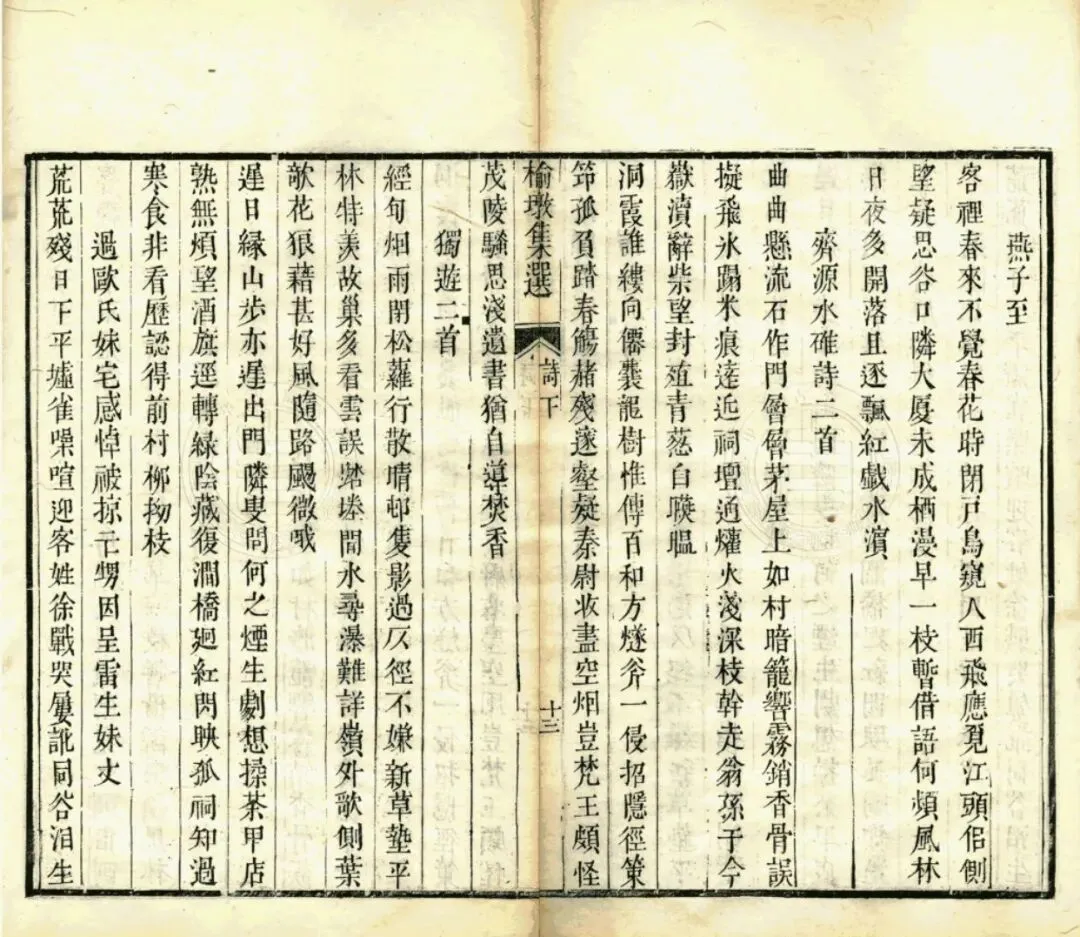 燕子至
客裡春來不覺春花時閉戸鳥窺人西飛應覓江頭侶側
朢疑思谷口隣大厦未成栖漫早一枝暫借語何頻風林
日夜多開落且逐飄紅戱水濱
齊源水碓詩二首
曲曲懸流石作門層層茅屋上如村暗籠響霧銷香骨誤
擬飛氷蹋米痕逵近祠壇通爟火淺深枝幹走翁孫于今
嶽瀆辭柴望封殖青葱自曖昷
洞霞誰縷向僊囊龍樹惟傳百和方燧斧一侵招隱徑策
笻孤負踏春觴赭殘邃壑疑秦尉收盡空烟豈梵王頗怪
榆墩集選
詩下
十三
茂陵騷思淺遺書猶自導焚香
獨遊二首
經旬烟雨閉松蘿行散晴邨隻影過仄徑不嫌新草墊平
林特羨故巢多看雲誤踏塍間水尋瀑難詳嶺外歌側葉
欹花狼藉甚好風隨路颺微哦
遲日緣山步亦遲出門隣叟問何之煙生劇想搡茶甲店
熟無煩朢酒旗逕轉綠陰藏復澗橋廻紅閃映孤祠知過
寒食非看歷認得前村柳拗枝
過歐氏妹宅感悼被掠二甥因呈雷生妹丈
荒荒殘日下平墟雀噪喧迎客姓徐戰哭屢訛同谷泪生